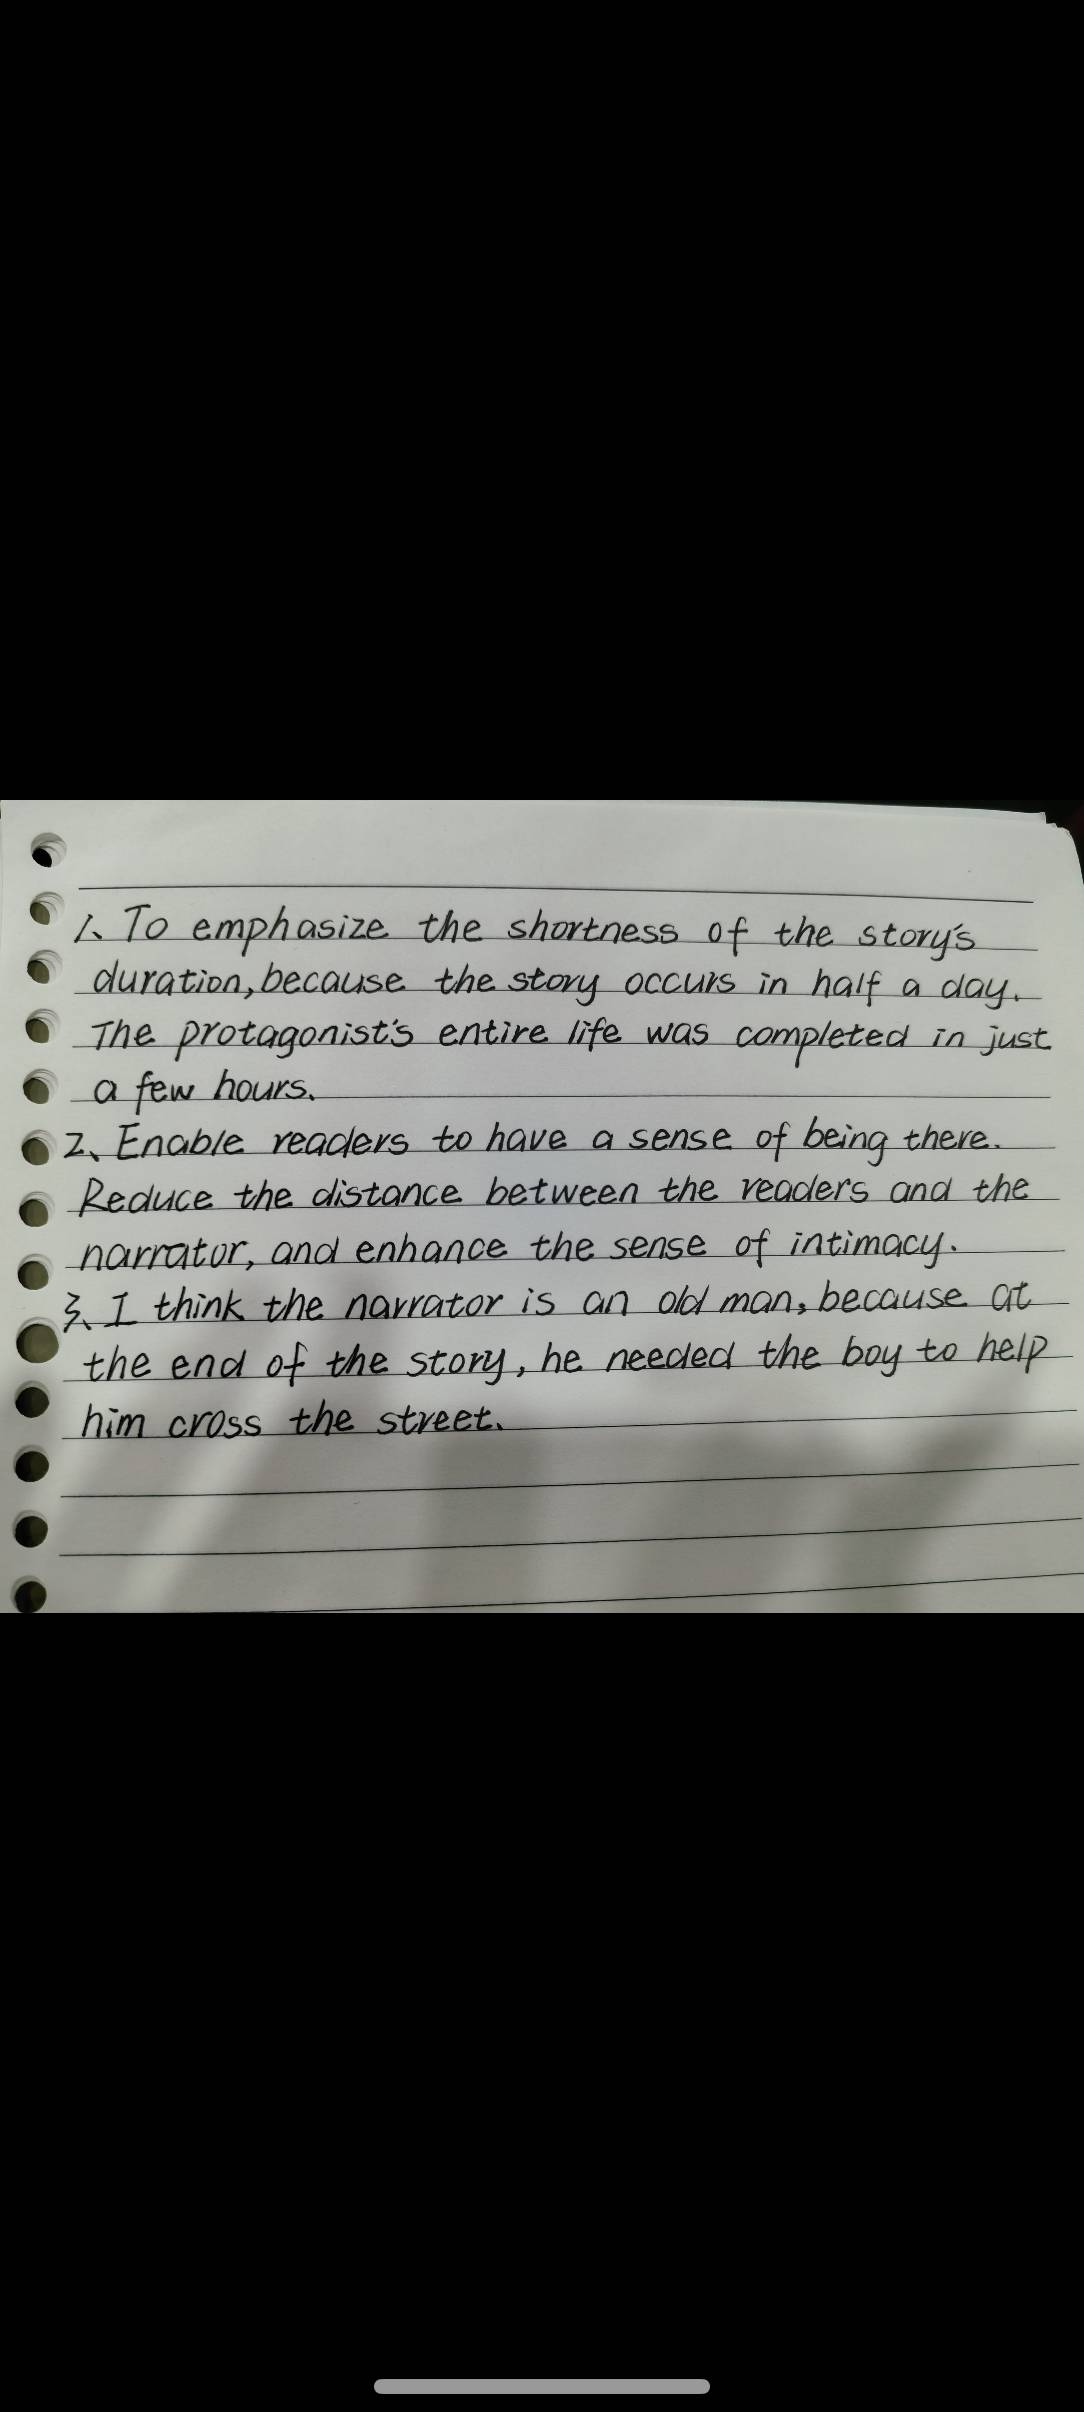 1、To emphasize the shortness of the story's
duration, because the story occurs in half a day.
The protagonist's entire life was completed in just
a few hours.
2、Enable readers to have a sense of being there.
Reduce the distance between the readers and the
narrator, and enhance the sense of intimacy.
3、I think the narrator is an old man, because at
the end of the story, he needed the boy to help
him cross the street.